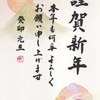 謹賀新年
本年も何卒よろしく
お願い申し上げます
癸卯 元旦